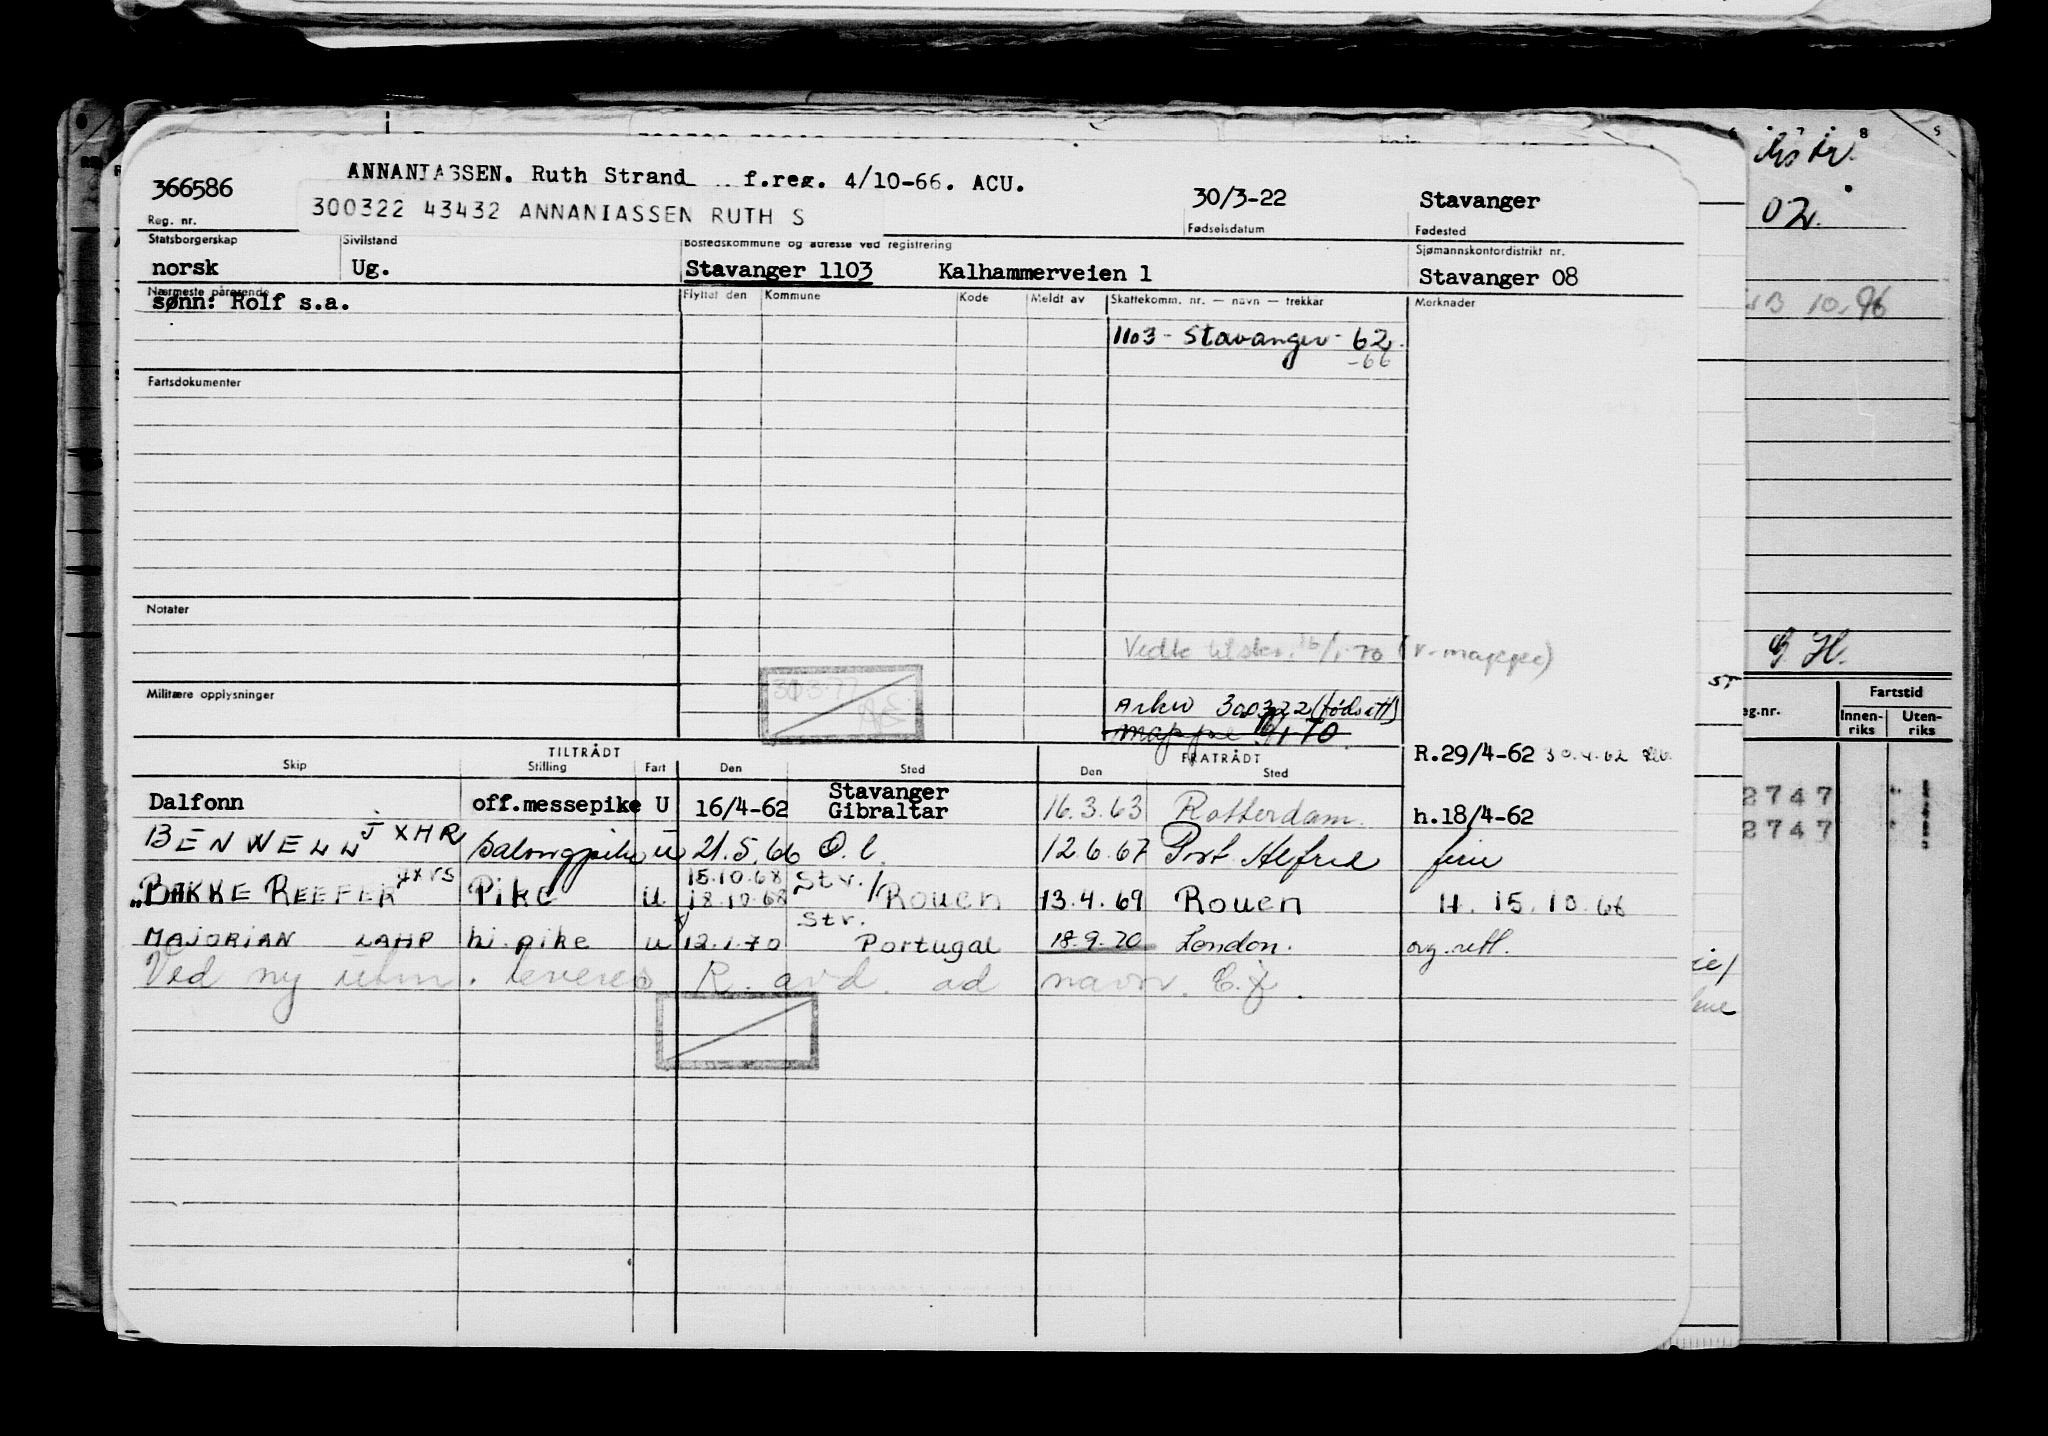 366586 ANNANIASSEN. Ruth Strand f.reg. 4/10-66. ACU. 30/3-22 Stavanger
300322 43432 ANNANIASSEN RUTH S
Reg. nr. Fødselsdatum Fødested
Statsborgerskap Sivilstand Bostedskommune og adresse ved registrering Sjømannskontordistrikt nr.
norsk Ug. Stavanger 1103 Kalhammerveien 1 Stavanger 08
Nærmeste pårørende Flyttet den Kommune Kode Meldt av Skattekomm. nr. — navn — trekkar Merknader
sønn: Rolf s.a.
1103 - Stavanger - 62.
-66
Fartsdokumenter
Notater
Vedk 16/1-70 (v. mappe)
Militære opplysninger
Arkiv 300322 (føds.att)
mappe 16/1 70
TILTRÅDT FRATRÅDT
R.29/4-62 30.4.62
Skip Stilling Fart Den Sted Den Sted
Dalfonn off.messepike U 16/4-62 Stavanger Gibraltar 16.3.63 Rotterdam h.18/4-62
BENWELL JXHR Salongpike U 21.5.66 O.l. 12.6.67 Port Alfred ferie
"BAKKE REEFER Pike U 15.10.68 18.10.68 Str./Rouen 13.4.69 Rouen H. 15.10.68
MAJORIAN LAHP hj.pike U 12.1.70 Str. Portugal 18.9.70 London. avg. rett.
Ved ny utm. leveres R. avd. ad navn. E.J.
02.
10.96
G H.
eg.nr. Fartstid
Innen-riks Uten-riks
2747
2747